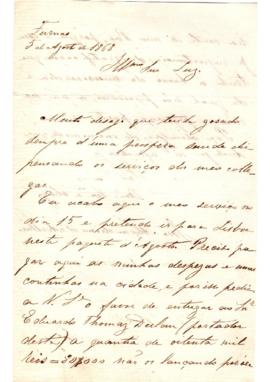 Furnas
5 de Agosto de 1868
Illmo Snr Luz.
Muito desejo que tenha gosado
sempre d'uma prospera saude dis-
pensando os serviços do meu colle-
ga.
Eu acabo aqui o meu serviço no
dia 15 e pretendo ir para Lisboa
neste paquete d'Agosto. Preciso pa-
gar aqui as minhas despezas e umas
continhas na cidade, e por isso pedia
a V. Sª o favor de entregar ao Snr
Eduardo Thomaz portador
desta, a quantia de oitenta mil
reis = 80$000 não os lançando por isso